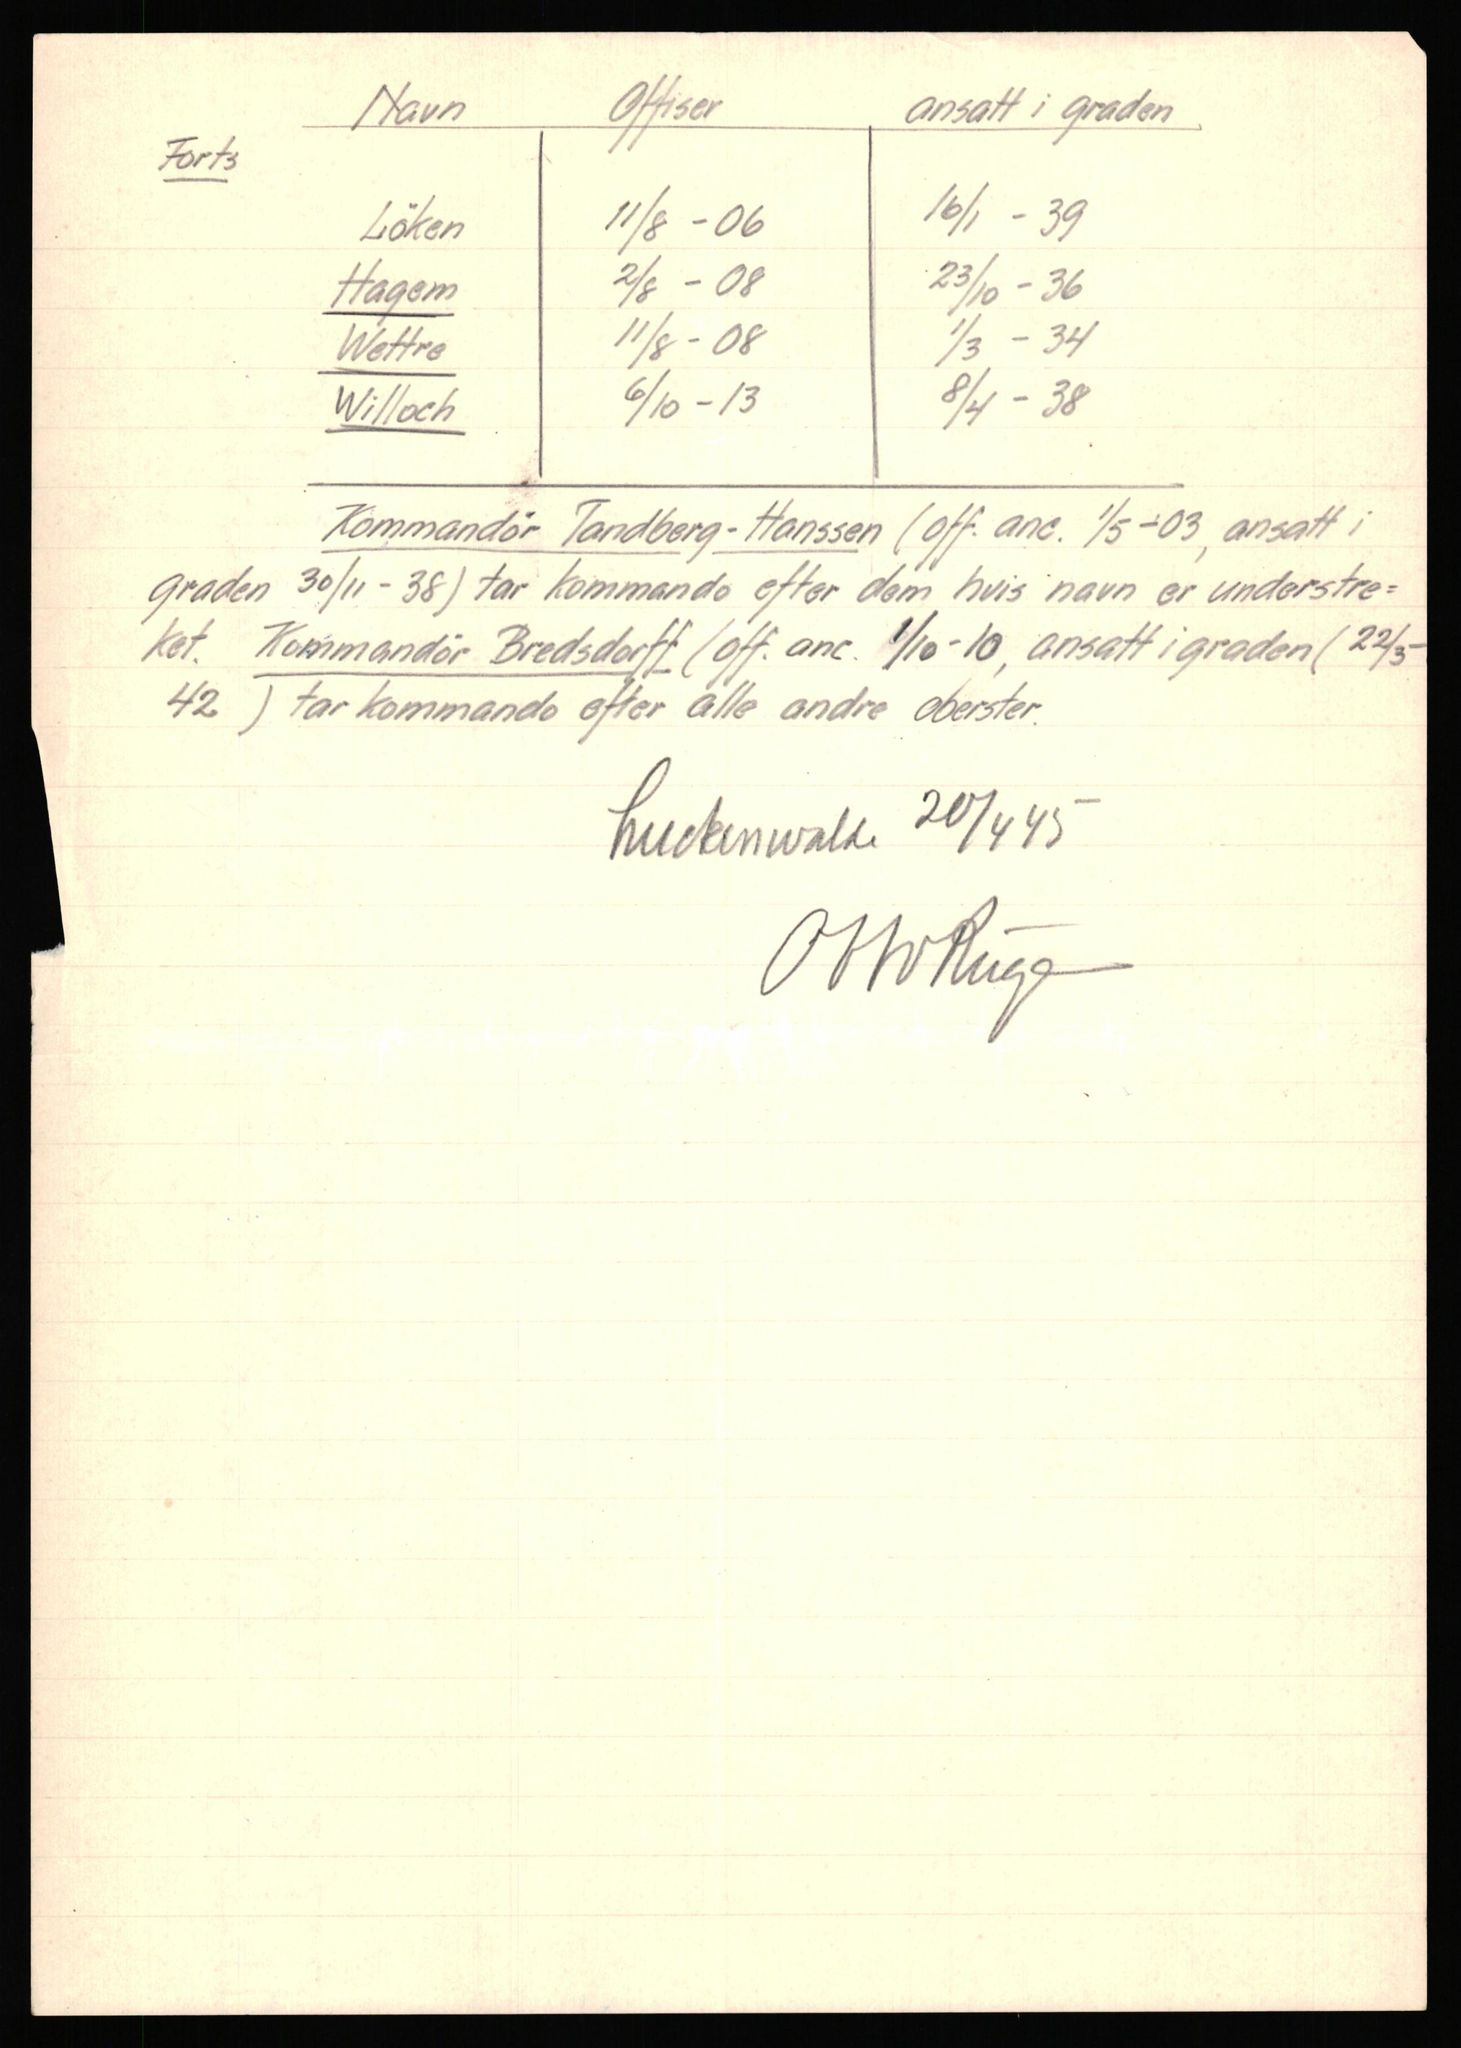 Navn Offiser ansatt i graden
Forts
Löken 11/8 - 06 16/1 - 39
Hagem 2/8 - 08 23/10 - 36
Wettre 11/8 - 08 1/3 - 34
Willoch 6/10 - 13 8/4 - 38
Kommandör Tandberg-Hanssen (off. anc. 1/5 - 03, ansatt i
graden 30/11 - 38) tar kommando efter dem hvis navn er understre=
ket. Kommandör Bredsdorff (off. anc. 1/10 - 10, ansatt i graden ( 22/3 -
42 ) tar kommando efter alle andre oberster.
Luckenwalde 20/4 45
Otto Ruge